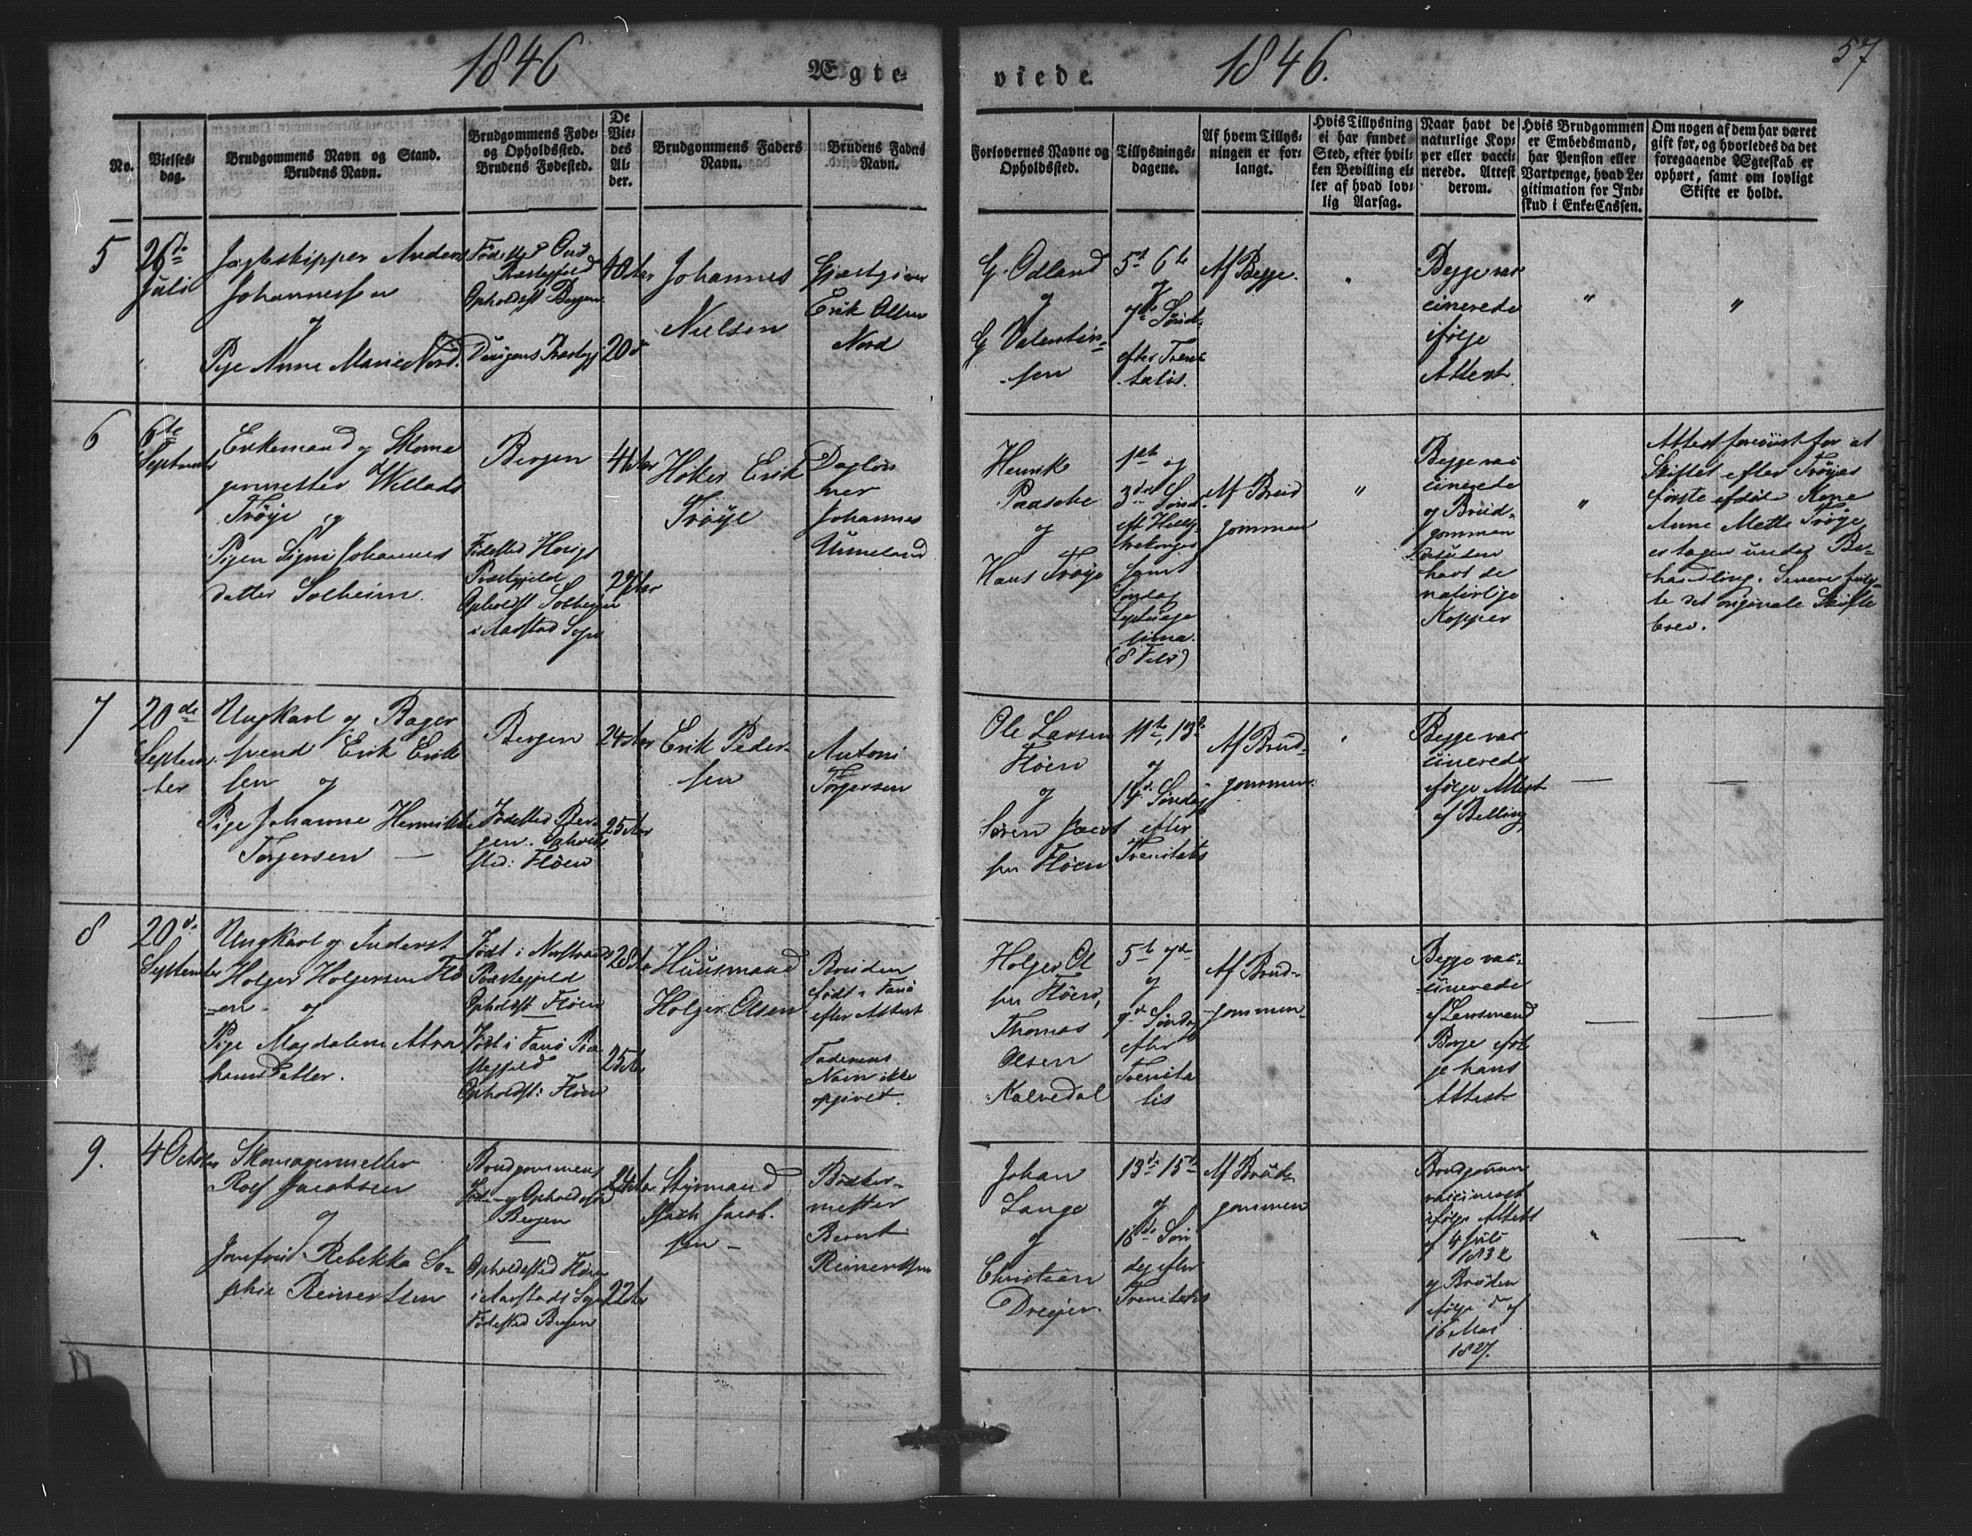 1846 Ægte-
viede. 1846. 57
No.
Vielses-
dag.
Brudgommens Navn og Stand.
Brudens Navn.
Brudgommens Føde-
og Opholdssted.
Brudens Fødested.
De
Vie-
des
Al-
der.
Brudgommens Faders
Navn.
Brudens Faders
Navn.
Forlovernes Navne og
Opholdssted.
Tillysnings-
dagene.
Af hvem Tillys-
ningen er for-
langt.
Hvis Tillysning
ei har fundet
Sted, efter hvil-
ken Bevilling el-
ler af hvad lov-
lig Aarsag.
Naar havt de
naturlige Kop-
per eller vacci-
nerede. Attest
derom.
Hvis Brudgommen
er Embedsmand,
har Pension eller
Vartpenge, hvad Le-
gitimation for Ind-
skud i Enke-Cassen.
Om nogen af dem har været
gift før, og hvorledes da det
foregaaende Ægteskab er
ophørt, samt om lovligt
Skifte er holdt.
5
26de
Juli
Jagtskipper Anders
Johannessen
og
Pige Anne Marie Nord.
Fødested
Præstegjeld
Opholdst Bergen
Præstegj
40 Aar
20
Johannes
Nielsen
Gjæstgiver
Erik Olsen
Nord
G. Odland
og
G. Valentin-
sen
5te 6te
og
7de Sønd-
efter Trini-
tatis.
Af Begge.
"
Begge vac
cinerede
ifølge
Attest.
"
"
6
6te
September
Enkemand og Skoma
germester Willads
Trøye og
Pigen Signi Johannes
datter Solheim.
Bergen
Fødested
Præstegjeld
Opholdst Solhejm
i Aarstad Sogn
27 Aar
Høker Erik
Trøye
Dagløn
ner
Johannes
Unneland
Henrik
Paasche
og
Hans Trøye
1ste og
3die Sønd
eft Hellig
trekonger
samt
Søndag
Septuage
sima
(8 Febr)
Af Brud
gommen
"
Begge vac
cinerede
og Brud-
gommen
desuden
havt de
naturlige
Kopper
"
Attest foreviist for at
Skiftet efter Trøyes
første afdøde Kone
Anne Mette Trøye
er tagen under Be-
handling. Senere
te det originale Skifte
brev.
7
20de
Septem-
ber
Ungkarl og Bager
svend Erik Erik
sen og
Pige Johanne Henrikke
Torgersen —
Bergen
Fødested Ber-
gen. Opholds
sted: Fløen
24 Aar
25 Aar
Erik Peder-
sen
Antoni
Torgersen
Ole Larsen
Fløen
og
Søren Jacob
sen Fløen
11te, 13de
og
14de Søndag
efter
Trinitatis
Af Brud-
gommen.
Begge vac
cinerede
ifølge Attest
af Belling
—
—
8
20de
September
Ungkarl og Inderst
Holger Holgersen Flø
-en- og
Pige Magdalene Abra
hamsdatter.
Født i
Præstegjeld
Opholdst Fløen
Født i Fanø Præ
stegjeld
Opholdst: Fløen
28 Aar
25 Aar
Huusmand
Holger Olsen
Bruden
født i Fanø
efter Attest.
Faderens
Navn ikke
opgivet.
Holger Ol
sen Fløen,
Thomas
Olsen
Kalvedal
5te 7de
og
9de Søndag
efter
Trinita
tis
Af Brud-
gommen-
Begge vac-
cinerede
af Lensmand
Borge iføl
ge hans
Attest.
—
—
9.
4 October
Skomagermester
Rolf Jacobsen
og
Jomfrue Rebekka So-
phie Reinertsen
Brudgommens
Føde- og Opholdssted
Bergen
—
Opholdssted Fløen
i Aarstads Sogn
Fødested Bergen
24 Aar
22 Aar
Styrmand
Jacob-
sen —
Bødker-
mester
Bernt
Reinertsen
Johan
Lange
og
Christian
Dreyer.
13de 15de
og
16de Søn
dag efter
Trinitatis
Af Brud-
gommen
Brudgommen
vaccineret
ifølge Attest
af 4 Juli
1832
og Bruden
ifølge d° af
16 Mai
1827.
"
—